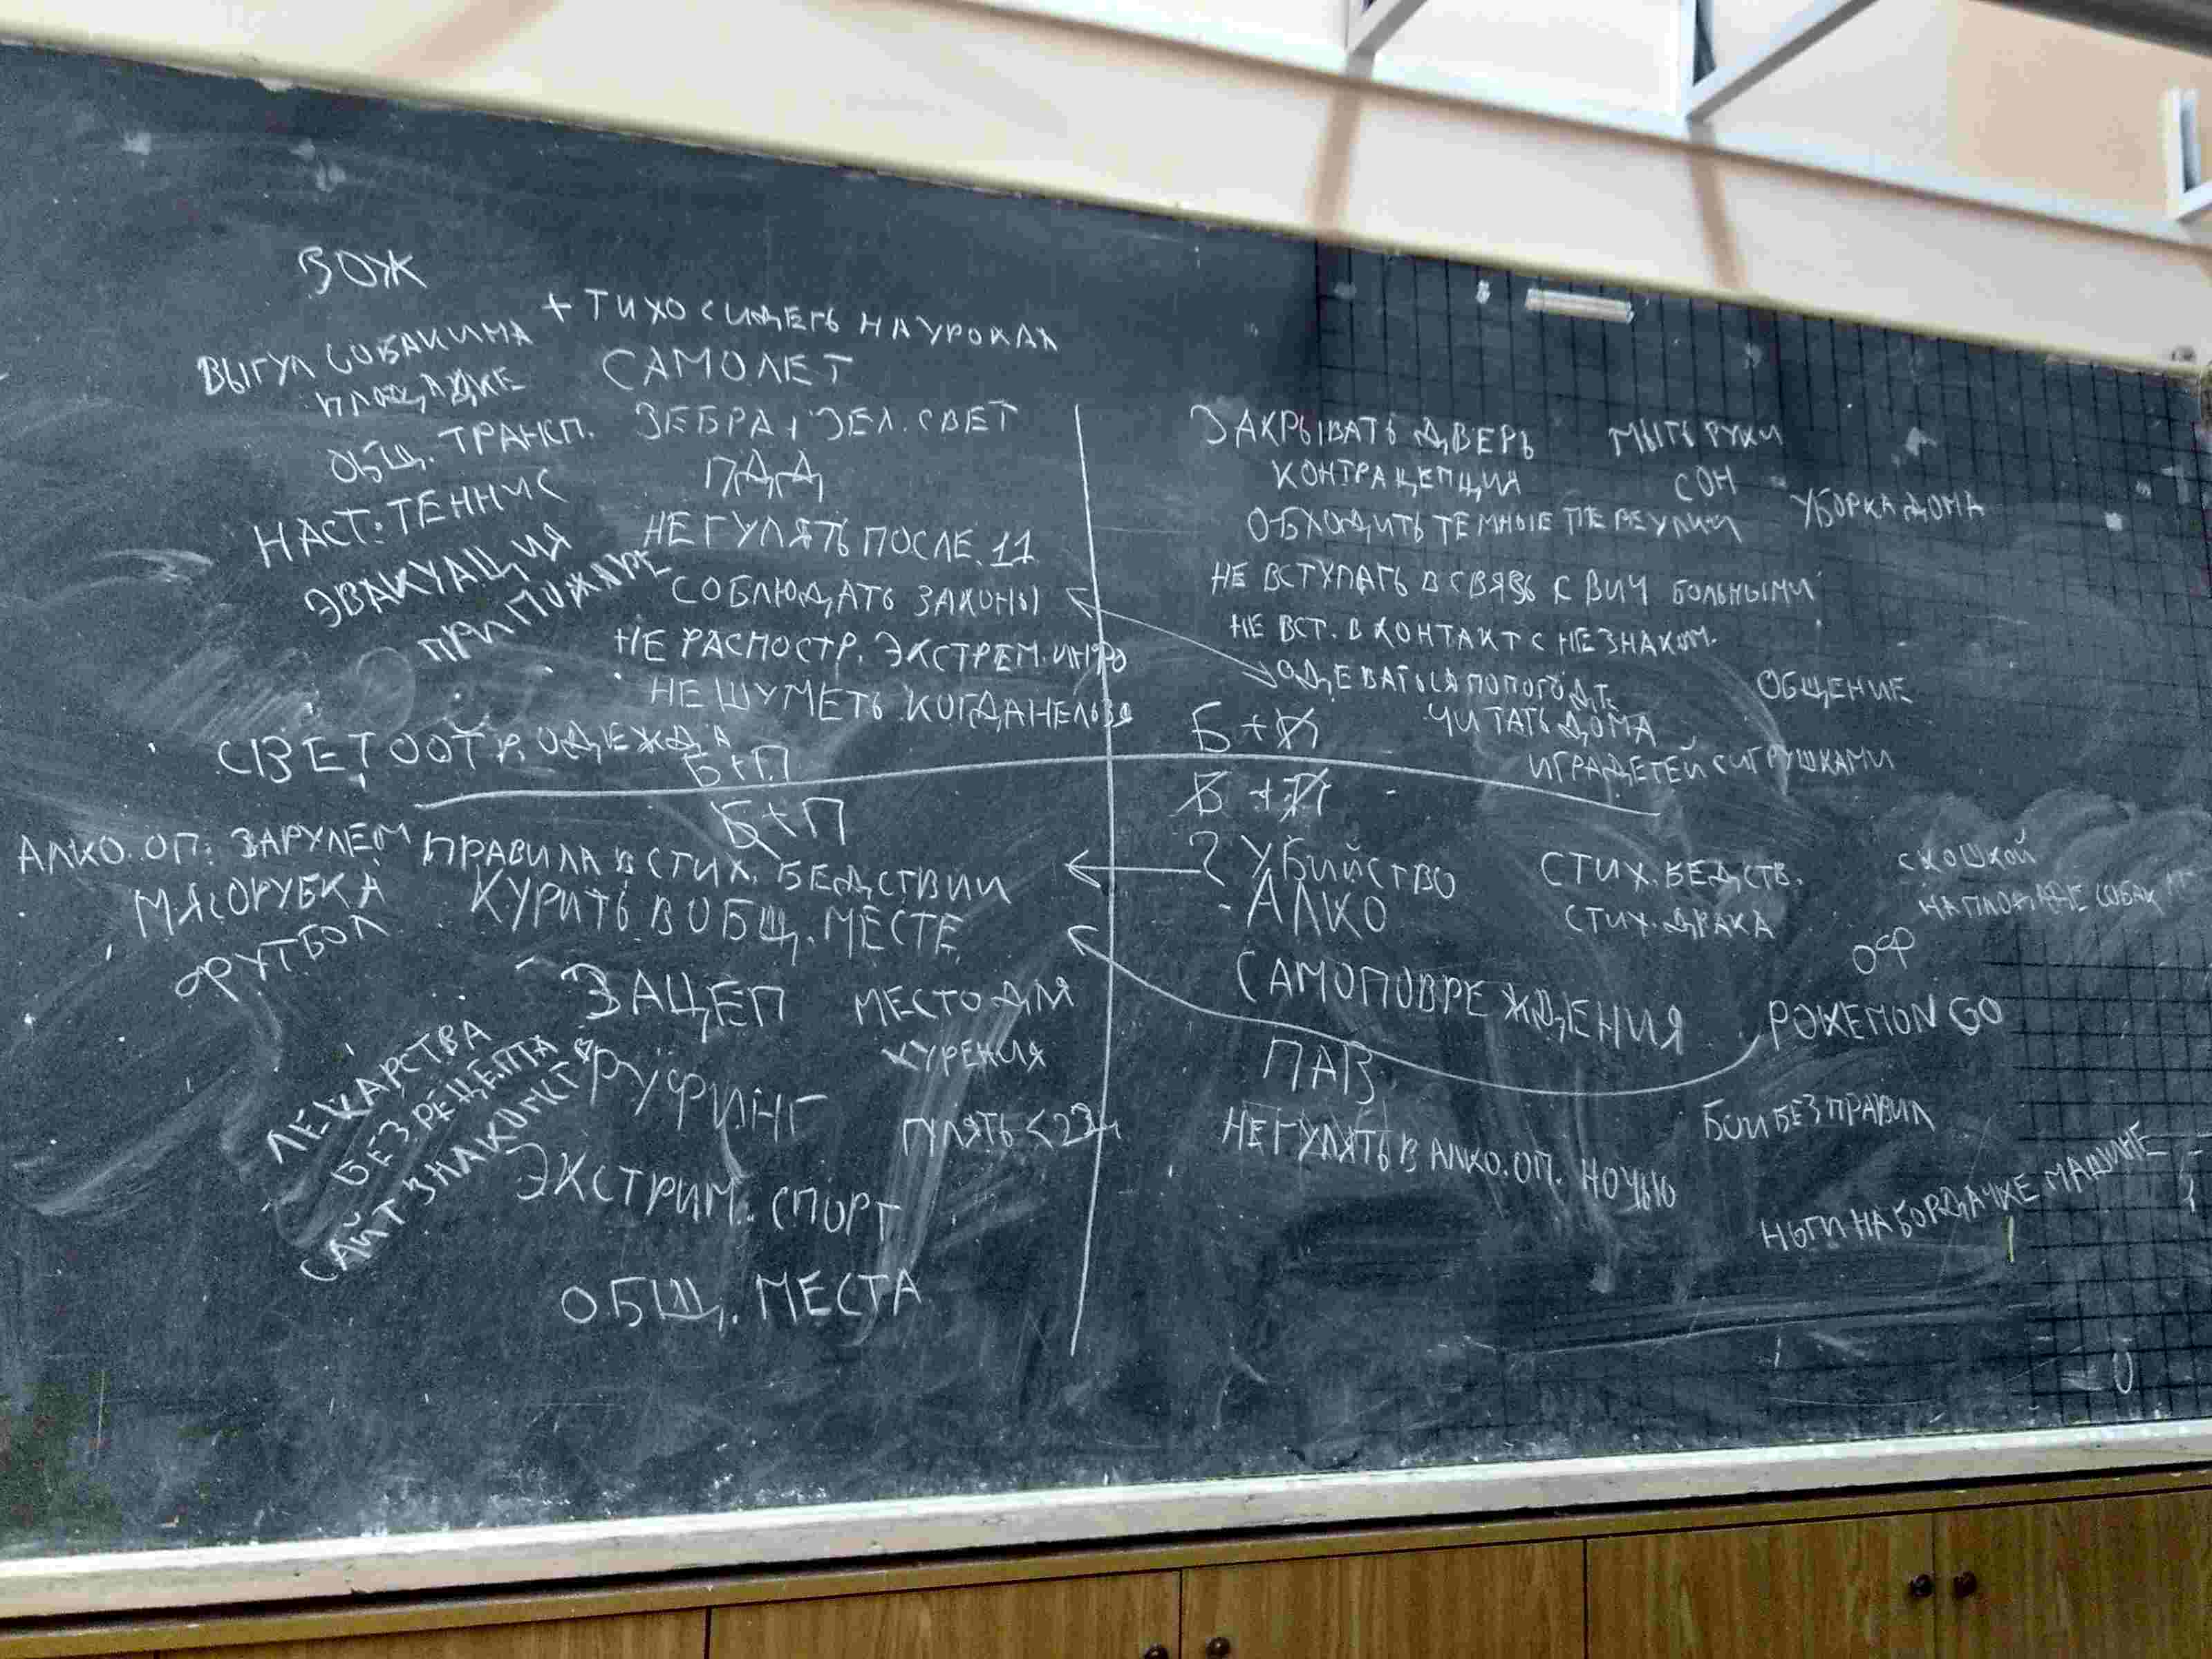 ЗОЖ
+ ТИХО СИДЕТЬ НА УРОКАХ
ВЫГУЛ СОБАКИ НА
ПЛОЩАДКЕ
САМОЛЕТ
ОБЩ. ТРАНСП.
ЗЕБРА + ЗЕЛ. СВЕТ
ПДД
НАСТ. ТЕННИС
НЕ ГУЛЯТЬ ПОСЛЕ 11
ЭВАКУАЦИЯ
ПРИ ПОЖАРЕ
СОБЛЮДАТЬ ЗАКОНЫ
НЕ РАСПОСТР. ЭКСТРЕМ. ИНФО
НЕ ШУМЕТЬ КОГДА НЕЛЬЗЯ
СВЕТООТР. ОДЕЖДА
Б+П
ЗАКРЫВАТЬ ДВЕРЬ
МЫТЬ РУКИ
КОНТРАЦЕПЦИЯ
СОН
УБОРКА ДОМА
ОБХОДИТЬ ТЕМНЫЕ ПЕРЕУЛКИ
НЕ ВСТУПАТЬ В СВЯЗЬ С ВИЧ БОЛЬНЫМИ
НЕ ВСТ. В КОНТАКТ С НЕЗНАКОМ.
ОДЕВАТЬСЯ ПО ПОГОДЕ
ОБЩЕНИЕ
ЧИТАТЬ ДОМА
Б + П
ИГРА ДЕТЕЙ С ИГРУШКАМИ
Б+П
АЛКО. ОП. ЗА РУЛЕМ
ПРАВИЛА В СТИХ. БЕДСТВИИ
МЯСОРУБКА
КУРИТЬ В ОБЩ. МЕСТЕ
ФУТБОЛ
ЗАЦЕП
МЕСТО ДЛЯ
КУРЕНИЯ
ЛЕКАРСТВА
БЕЗ РЕЦЕПТА
САЙТ ЗНАКОМСТВ
РУФИНГ
ГУЛЯТЬ < 23
ЭКСТРИМ. СПОРТ
ОБЩ. МЕСТА
Б + П
? УБИЙСТВО
СТИХ. БЕДСТВ.
С КОШКОЙ
НА ПЛОЩАДКЕ СОБАК
- АЛКО
СТИХ. ДРАКА
ОФ
САМОПОВРЕЖДЕНИЯ
POKEMON GO
ПАВ
БОИ БЕЗ ПРАВИЛ
НЕ ГУЛЯТЬ В АЛКО. ОП. НОЧЬЮ
НОГИ НА БОРДАЧКЕ МАШИНЕ